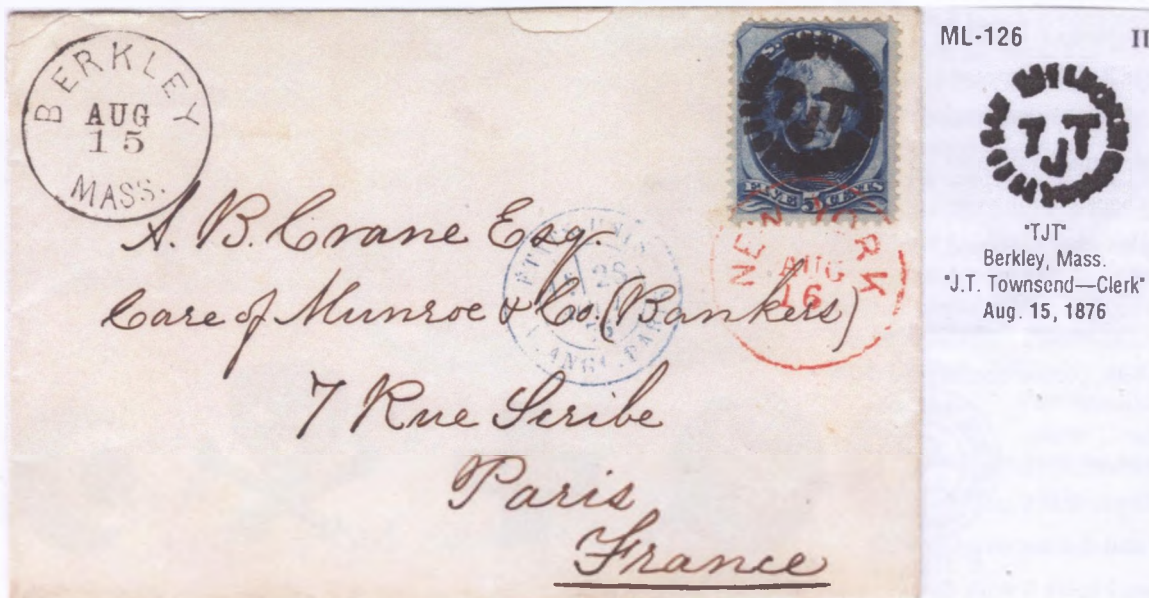 BERKLEY
AUG
15
MASS.
FIVE 5 CENTS
TJT
NEW YORK
AUG
16
A. B. Crane Esq.
Care of Munroe & Co. (Bankers)
7 Rue Scribe
Paris
France
ML-126
TJT
"TJT"
Berkley, Mass.
"J.T. Townsend—Clerk"
Aug. 15, 1876